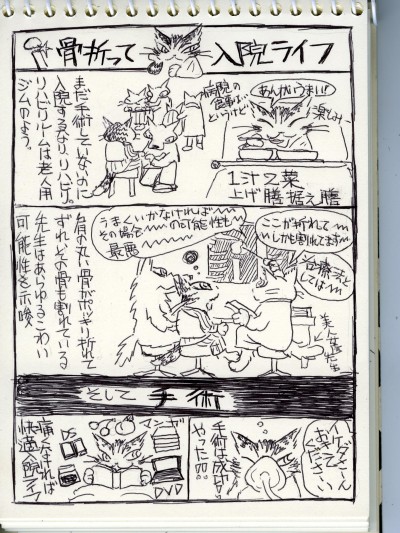 骨折って入院ライフ
病院の
食事は
というけど
あんがいうまい!!
楽しみ
1汁2菜
上げ膳据え膳
まだ手術していないのに
入院するなり、リハビリ。
リハビリルームは老人用
ジムのよう。
ここが折れて〜
しかも割れてます〜
治療法と
しては〜
美人女医先生
うまくいかなければ〜
その場合〜の可能性も〜
最悪〜
肩の丸い骨がボッキリ折れて
ずれ、その骨も割れている
先生はあらゆるこわい
可能性を示唆
そして手術
イケダさん
おきて
ください
手術は成功!
やった!!
マンガ
DS
DVD
痛くなければ
快適入院ライフ